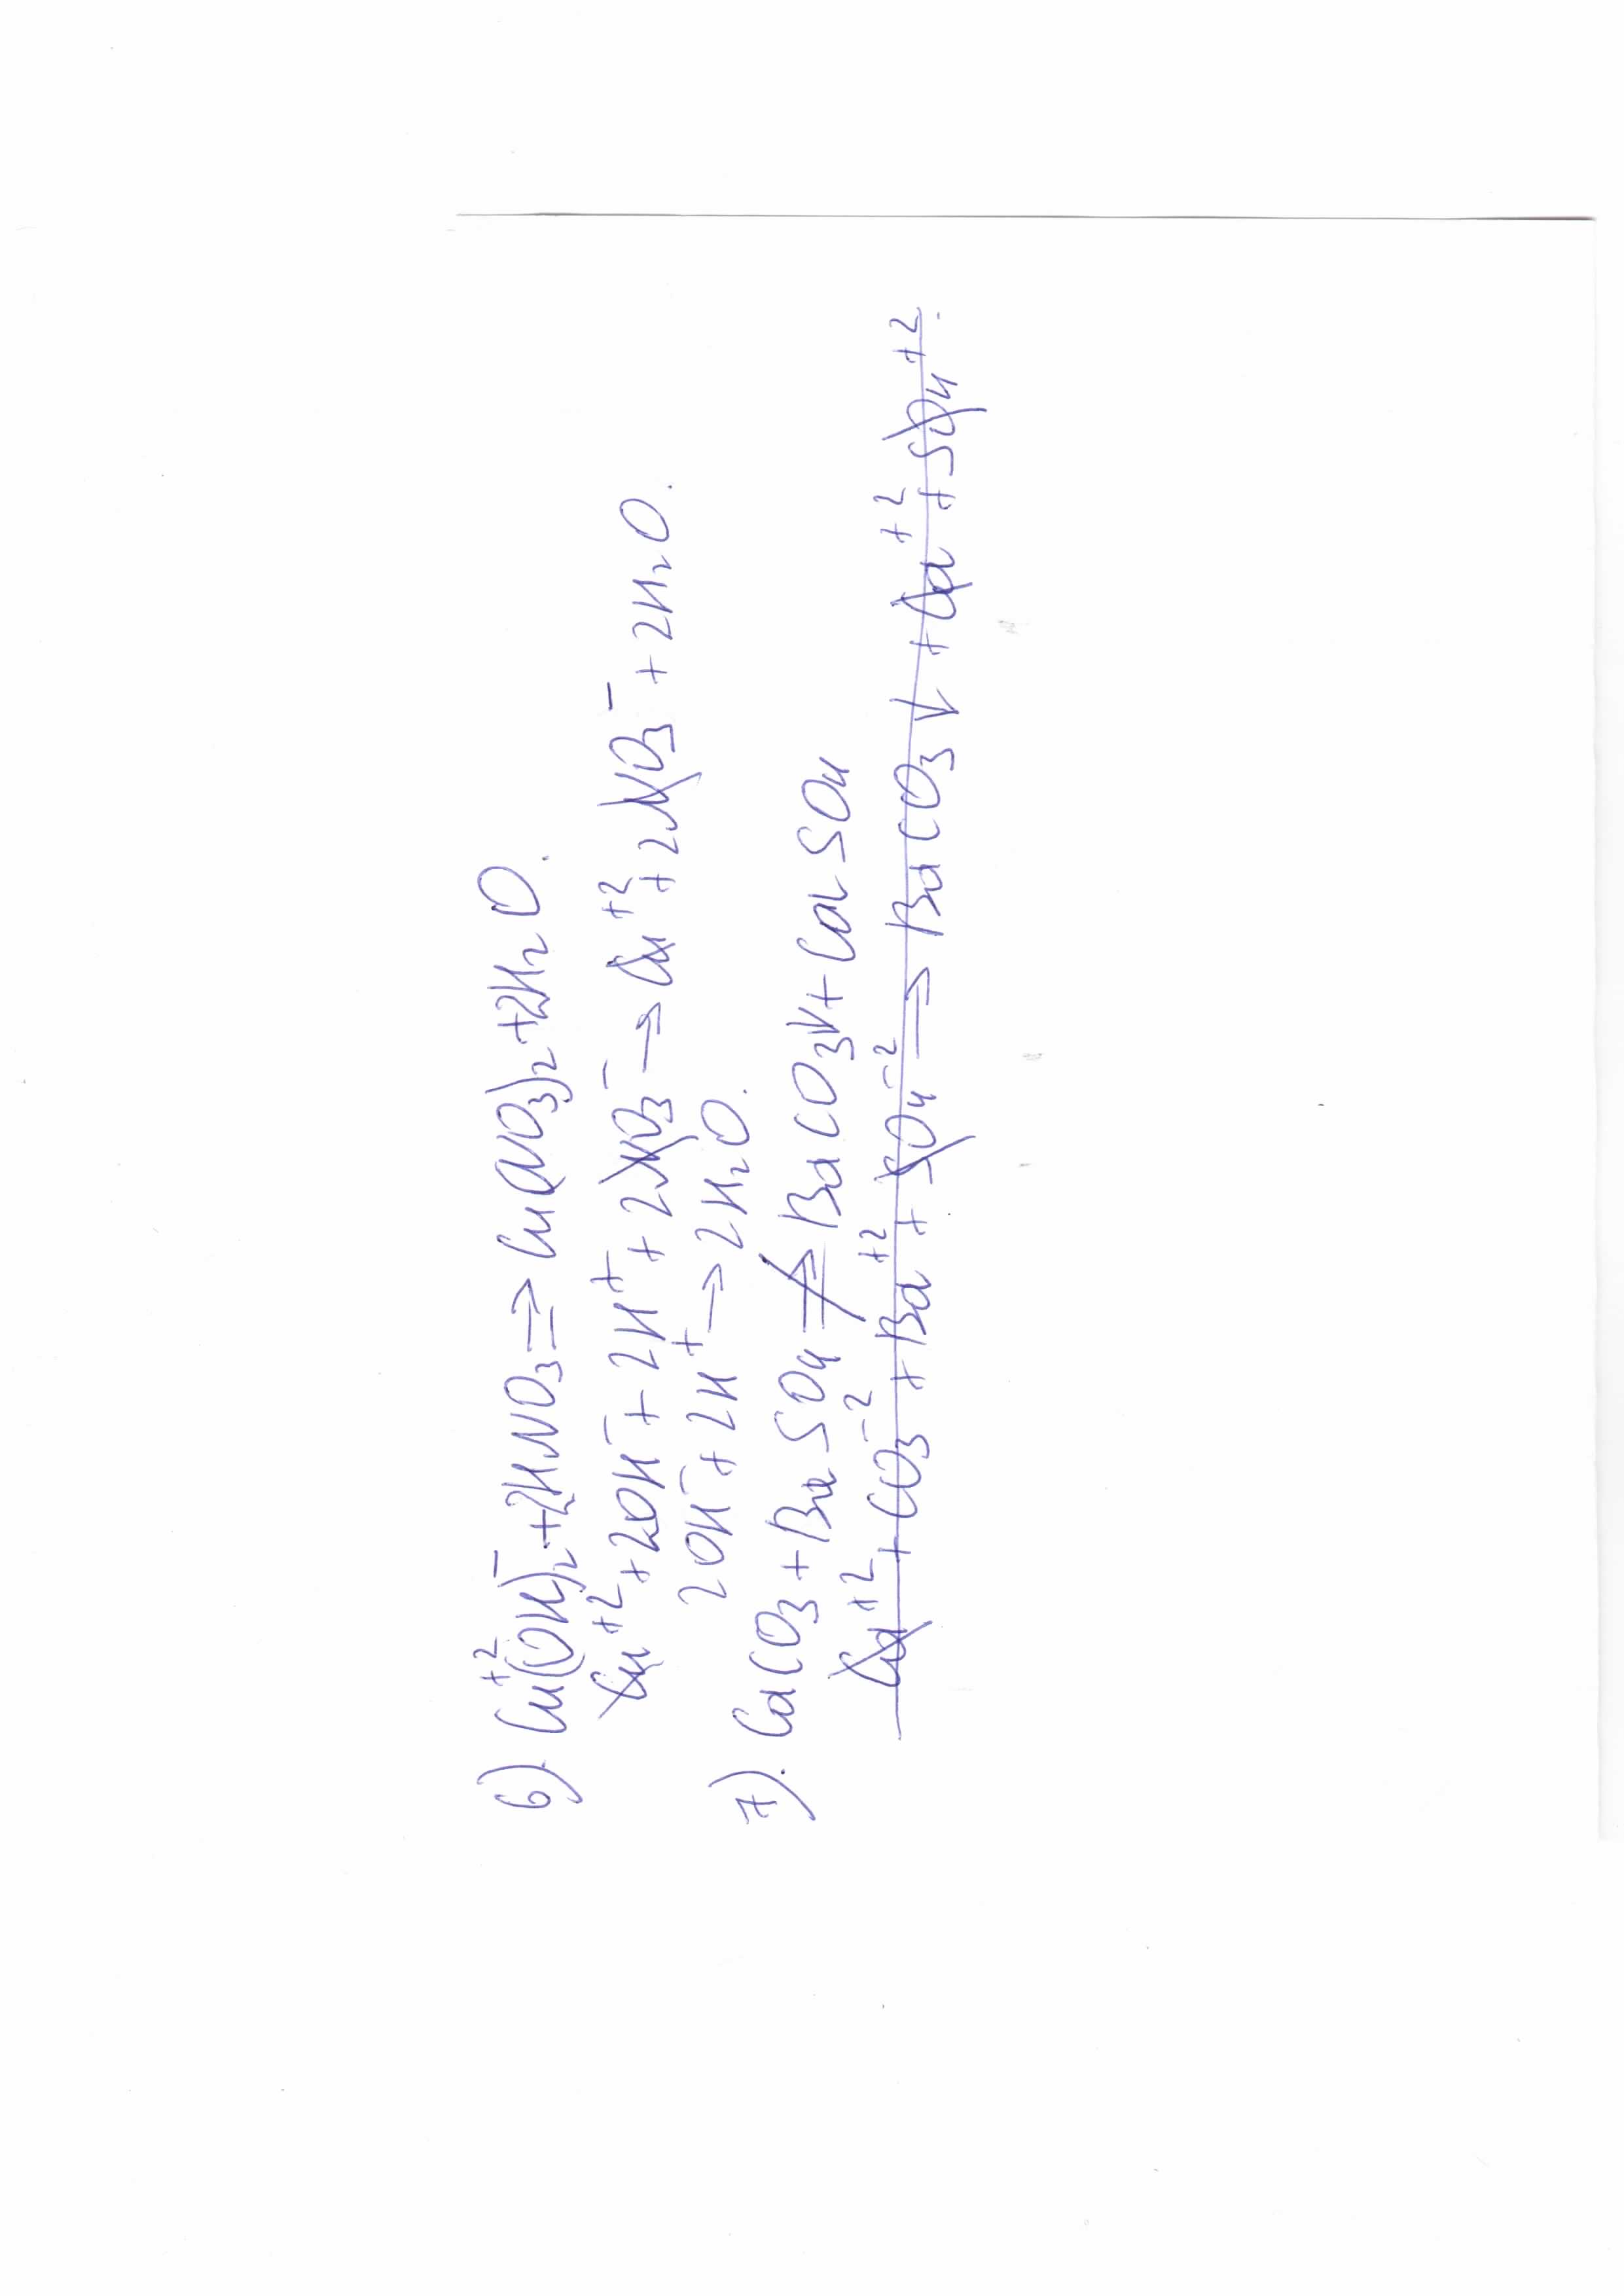 6). Cu⁺²(OH)₂⁻ + 2HNO₃ ⇒ Cu(NO₃)₂ + 2H₂O.
Cu⁺² + 2OH⁻ + 2H⁺ + 2NO₃⁻ → Cu⁺² + 2NO₃⁻ + 2H₂O.
2OH⁻ + 2H⁺ → 2H₂O.
7). CaCO₃ + BaSO₄ ⇏ BaCO₃↓ + CaSO₄
Ca⁺² + CO₃⁻² + Ba⁺² + SO₄⁻² ⇒ BaCO₃↓ + Ca⁺² + SO₄⁺².